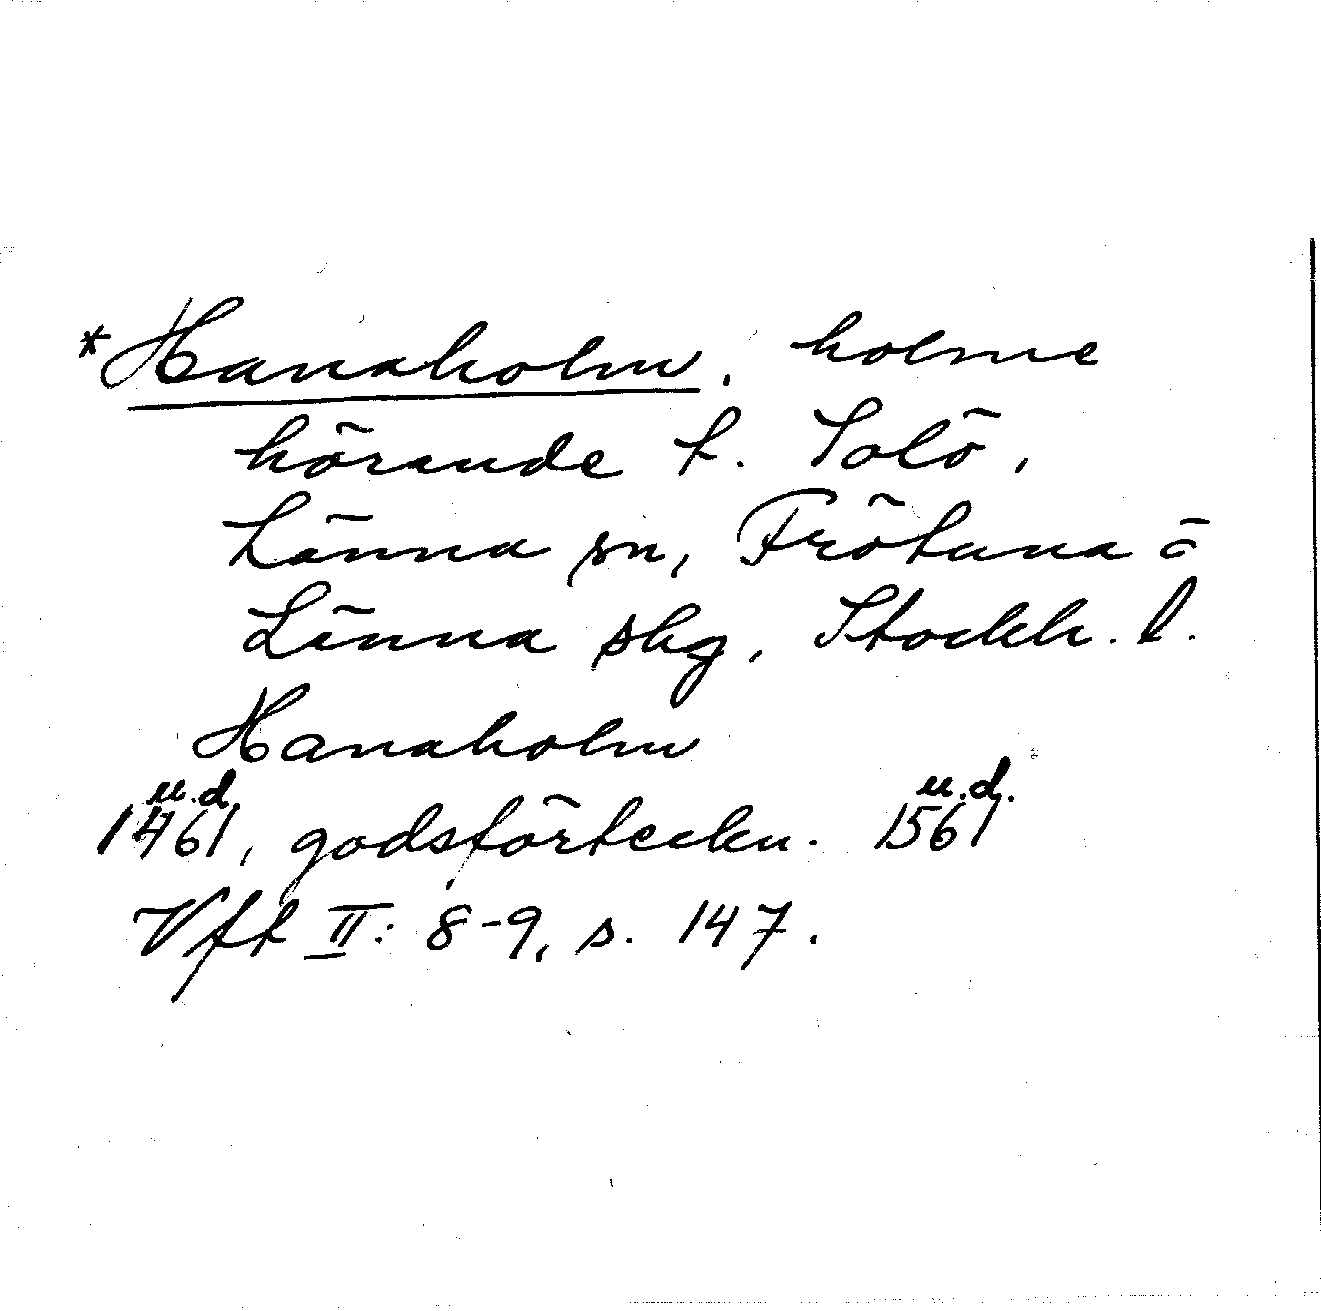 *Hanaholm, holme
hörande t. Solö,
Länna sn, Frötuna o
Länna skg, Stockh. l.
Hanaholm
u.d.
1461, godsförteckn. 1561 u.d.
Vft II: 8-9, s. 147.